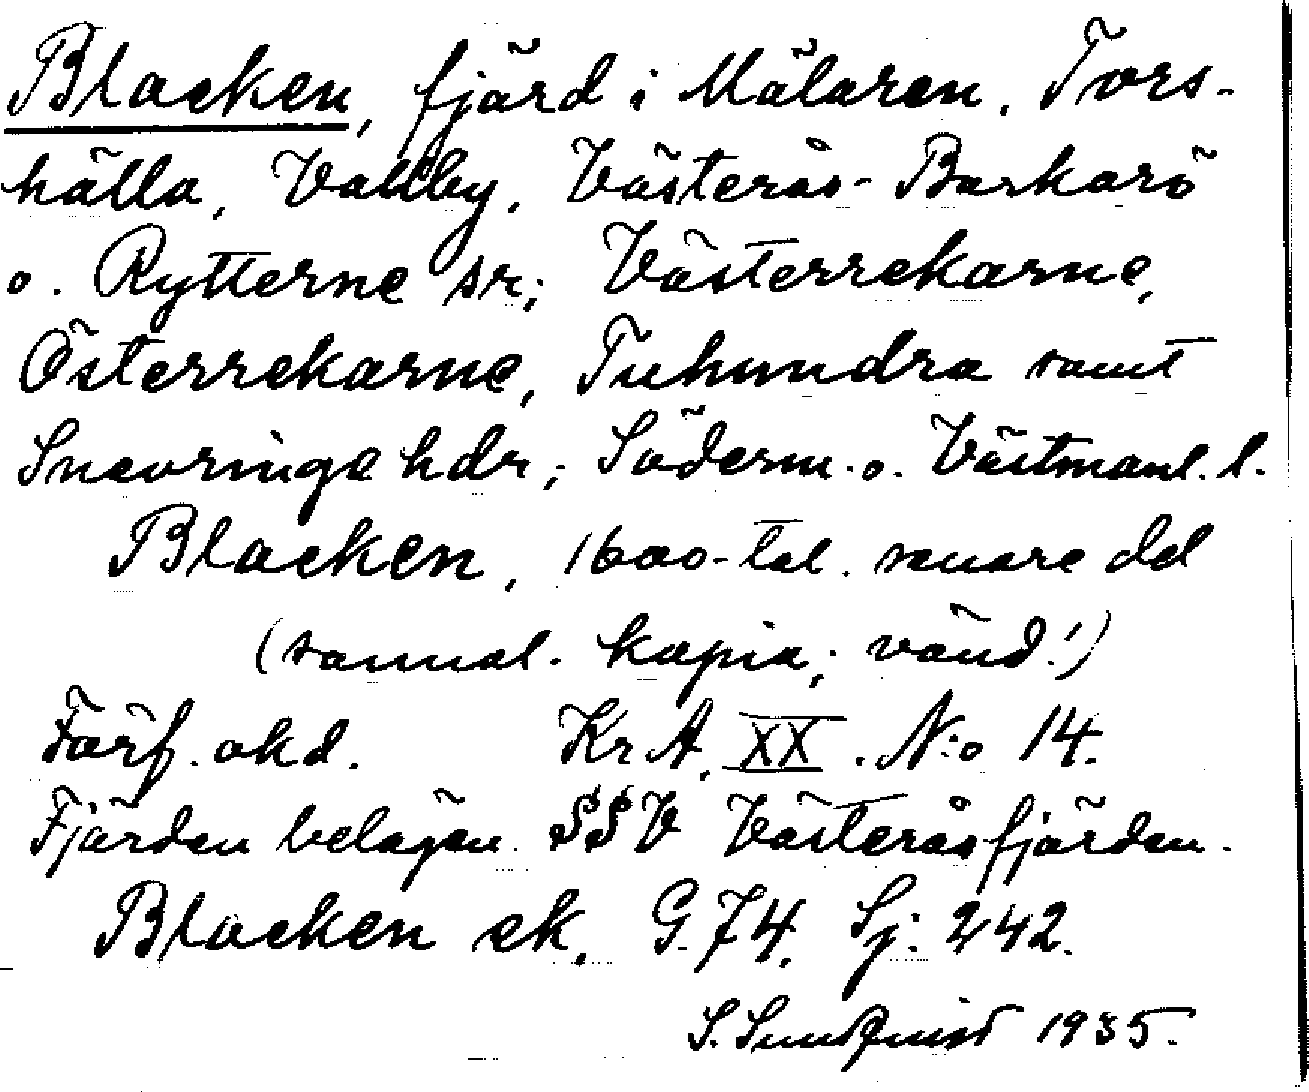 Blacken, fjärd i Mälaren. Tors-
hälla, Vallby, Västerås-Barkarö
o. Rytterne sr; Västerrekarne,
Österrekarne, Tuhundra samt
Snevringe hdr; Söderm. o. Västmanl. l.
Blacken, 1600-tal. senare del
(sannol. kopia; vänd!)
Förf. okd. Kr A. XX. N:o 14.
Fjärden belägen SSV Västeråsfjärden.
Blacken ek. G. 74. Sj: 242.
S. Sundquist 1935.